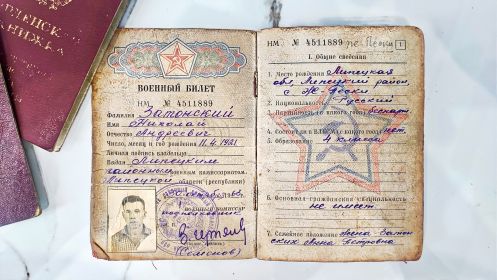 КНИЖКА
ВОЕННЫЙ БИЛЕТ
НМ № 4511889
Фамилия Затонский
Имя Николай
Отчество Андреевич
Число, месяц и год рождения 11.4.1921
Личная подпись владельца
Выдан Липецким
районным военным комиссариатом
Липецкой области (республики)
военный комиссар
подполковник
(Семенов)
НМ № 4511889
1
I. Общие сведения
1. Место рождения Липецкая
обл. Липецкий район,
2. Национальность Русский
4. Состоит ли в ВЛКСМ с какого года нет
5. Образование 4 класса
6. Основная гражданская специальность
не имеет
7. Семейное положение жена-Затон
ская Анна Петровна